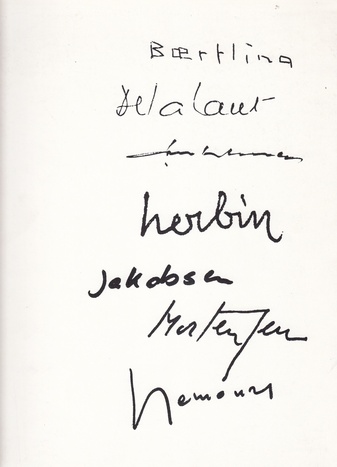 Bærtling
Delahaut
herbin
Jakobsen
Mortensen
Nemours